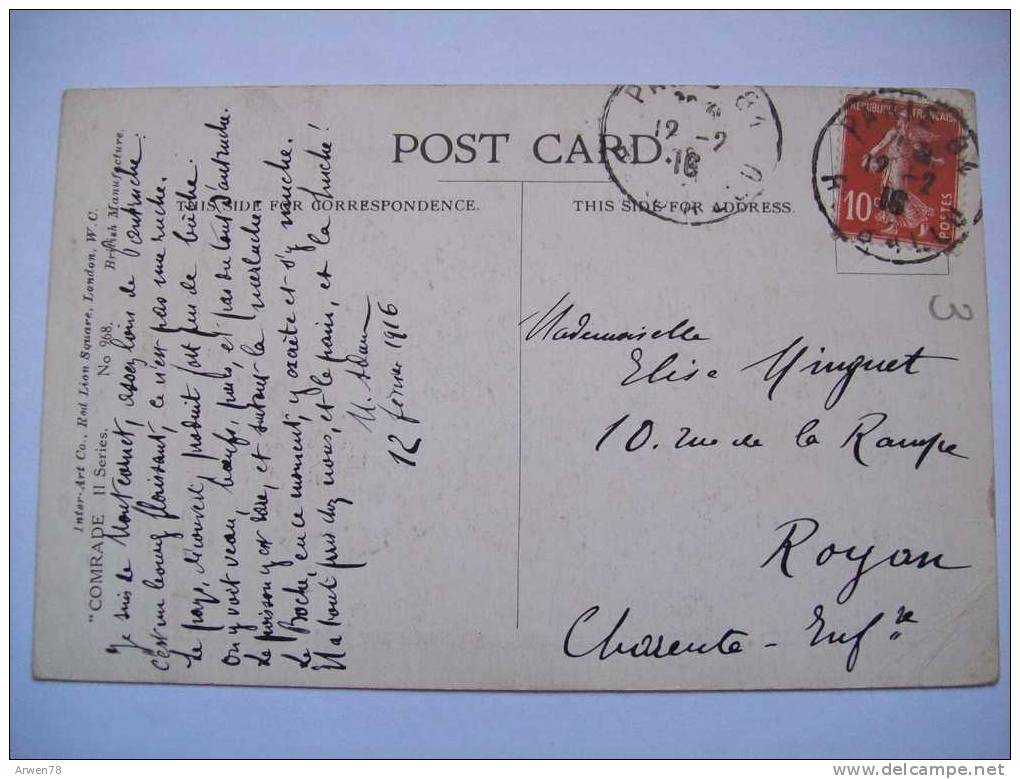 POST CARD.
THIS SIDE FOR CORRESPONDENCE.
THIS SIDE FOR ADDRESS.
Inter-Art Co., Red Lion Square, London, W. C.
"COMRADE" II Series. No 968. British Manufacture.
Je suis de assez loin de
C'est un bourg florissant, ce n'est pas une ruche.
Le pays, produit fort peu de bûche.
On y voit veau, bœufs, porcs, et pas du tout d'autruche.
Le poisson y est rare, et surtout la merluche.
Le Boche, en ce moment, y existe et s'y
Il a tout pris chez nous, et le pain, et la huche!
M. Adam
12 février 1916
Mademoiselle
Elise Minguet
10. rue de la Rampe
Royan
Charente - Infre
REPUBLIQUE FRANÇAISE
10
POSTES
PARIS
12 -2
16
PARIS
12 -2
16
3
Arwen78
www.delcampe.net